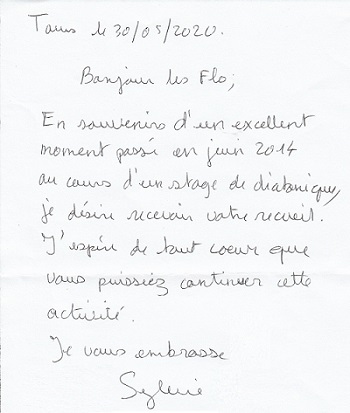 Tours le 30/05/2020.
Bonjour les Flo,
En souvenirs d'un excellent
moment passé en juin 2014
au cours d'un stage de diatonique,
je désire recevoir votre recueil.
J'espère de tout coeur que
vous puissiez continuer cette
activité.
Je vous embrasse
Sylvie